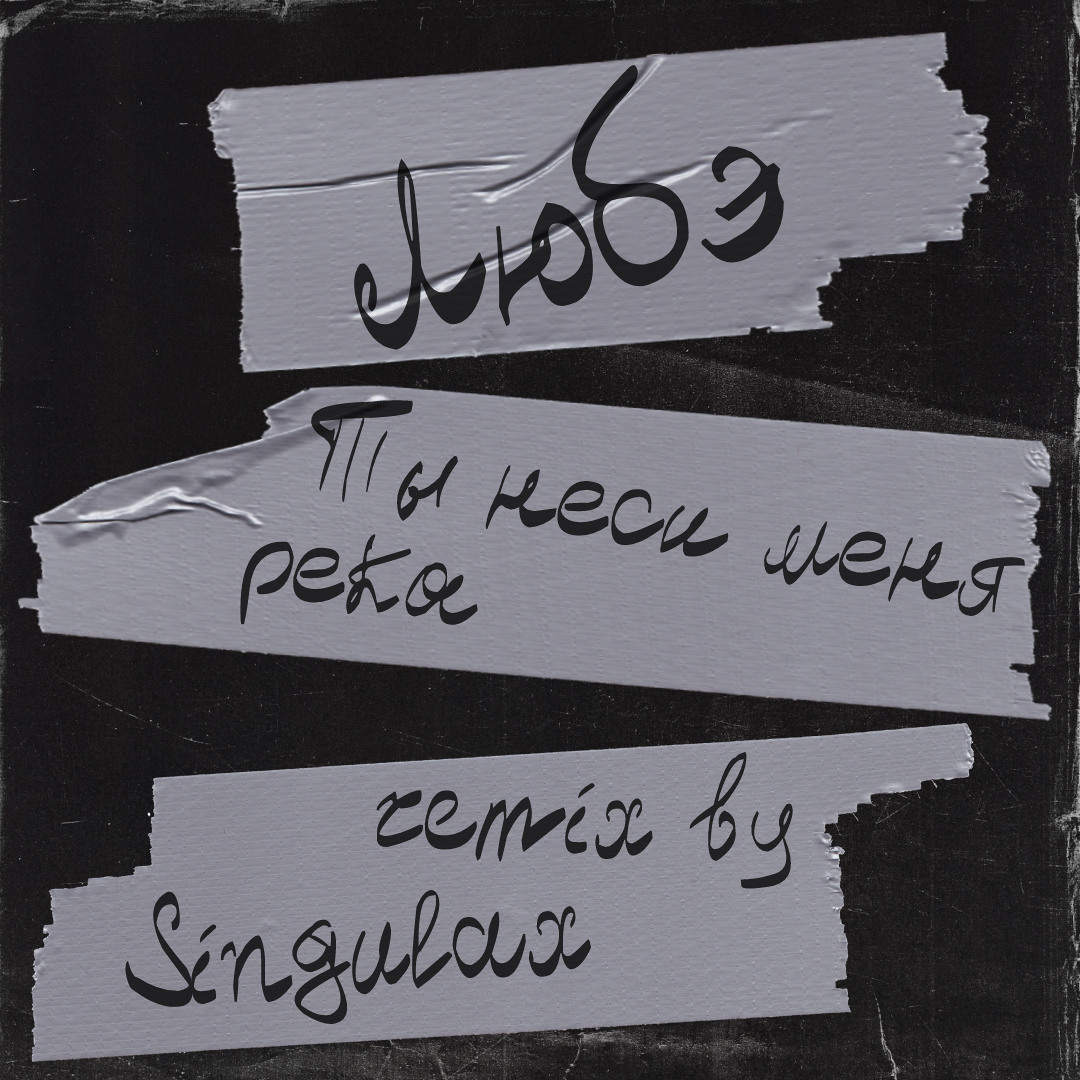 Любэ
Ты неси меня
река
remix by
Singulax